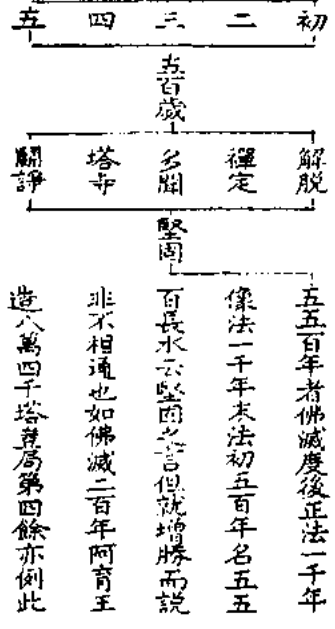 初
二
三
四
五
五百歲
解脫
禪定
多聞
塔寺
鬪諍
堅固
五五百年者佛滅度後正法一千年
像法一千年末法初五百年名五五
百長水云堅固之言但就增勝而説
非不相通也如佛滅二百年阿育王
造八萬四千塔豈局第四餘亦例此